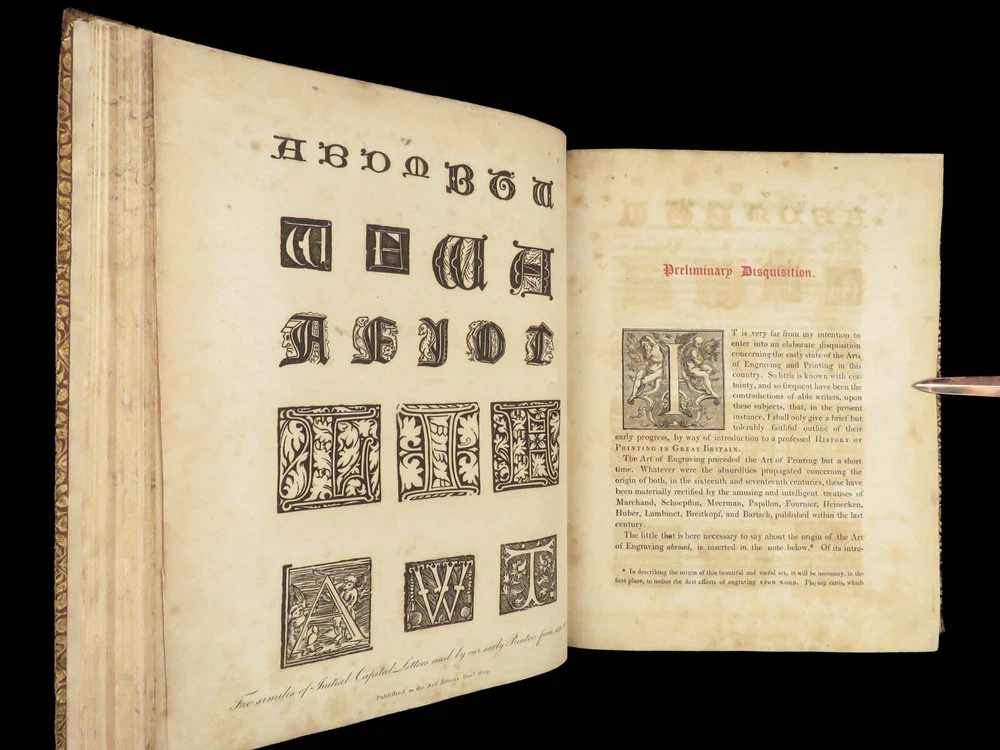 A B D M B T U
Fac similes of Initial Capital Letters used by our early Printers from
Published as the Act directs 1809
Preliminary Disquisition.
IT is very far from my intention to
enter into an elaborate disquisition
concerning the early state of the Arts
of Engraving and Printing in this
country. So little is known with cer-
tainty, and so frequent have been the
contradictions of able writers, upon
these subjects, that, in the present
instance, I shall only give a brief but
tolerably faithful outline of their
early progress, by way of introduction to a professed HISTORY OF
PRINTING IN GREAT BRITAIN.
The Art of Engraving preceded the Art of Printing but a short
time. Whatever were the absurdities propagated concerning the
origin of both, in the sixteenth and seventeenth centuries, these have
been materially rectified by the amusing and intelligent treatises of
Marchand, Schoepflin, Meerman, Papillon, Fournier, Heinecken,
Huber, Lambinet, Breitkopf, and Bartsch, published within the last
century.
The little that is here necessary to say about the origin of the Art
of Engraving abroad, is inserted in the note below.* Of its intro-
* In describing the origin of this beautiful and useful art, it will be necessary, in the
first place, to notice the first efforts of engraving UPON WOOD. Playing cards, which